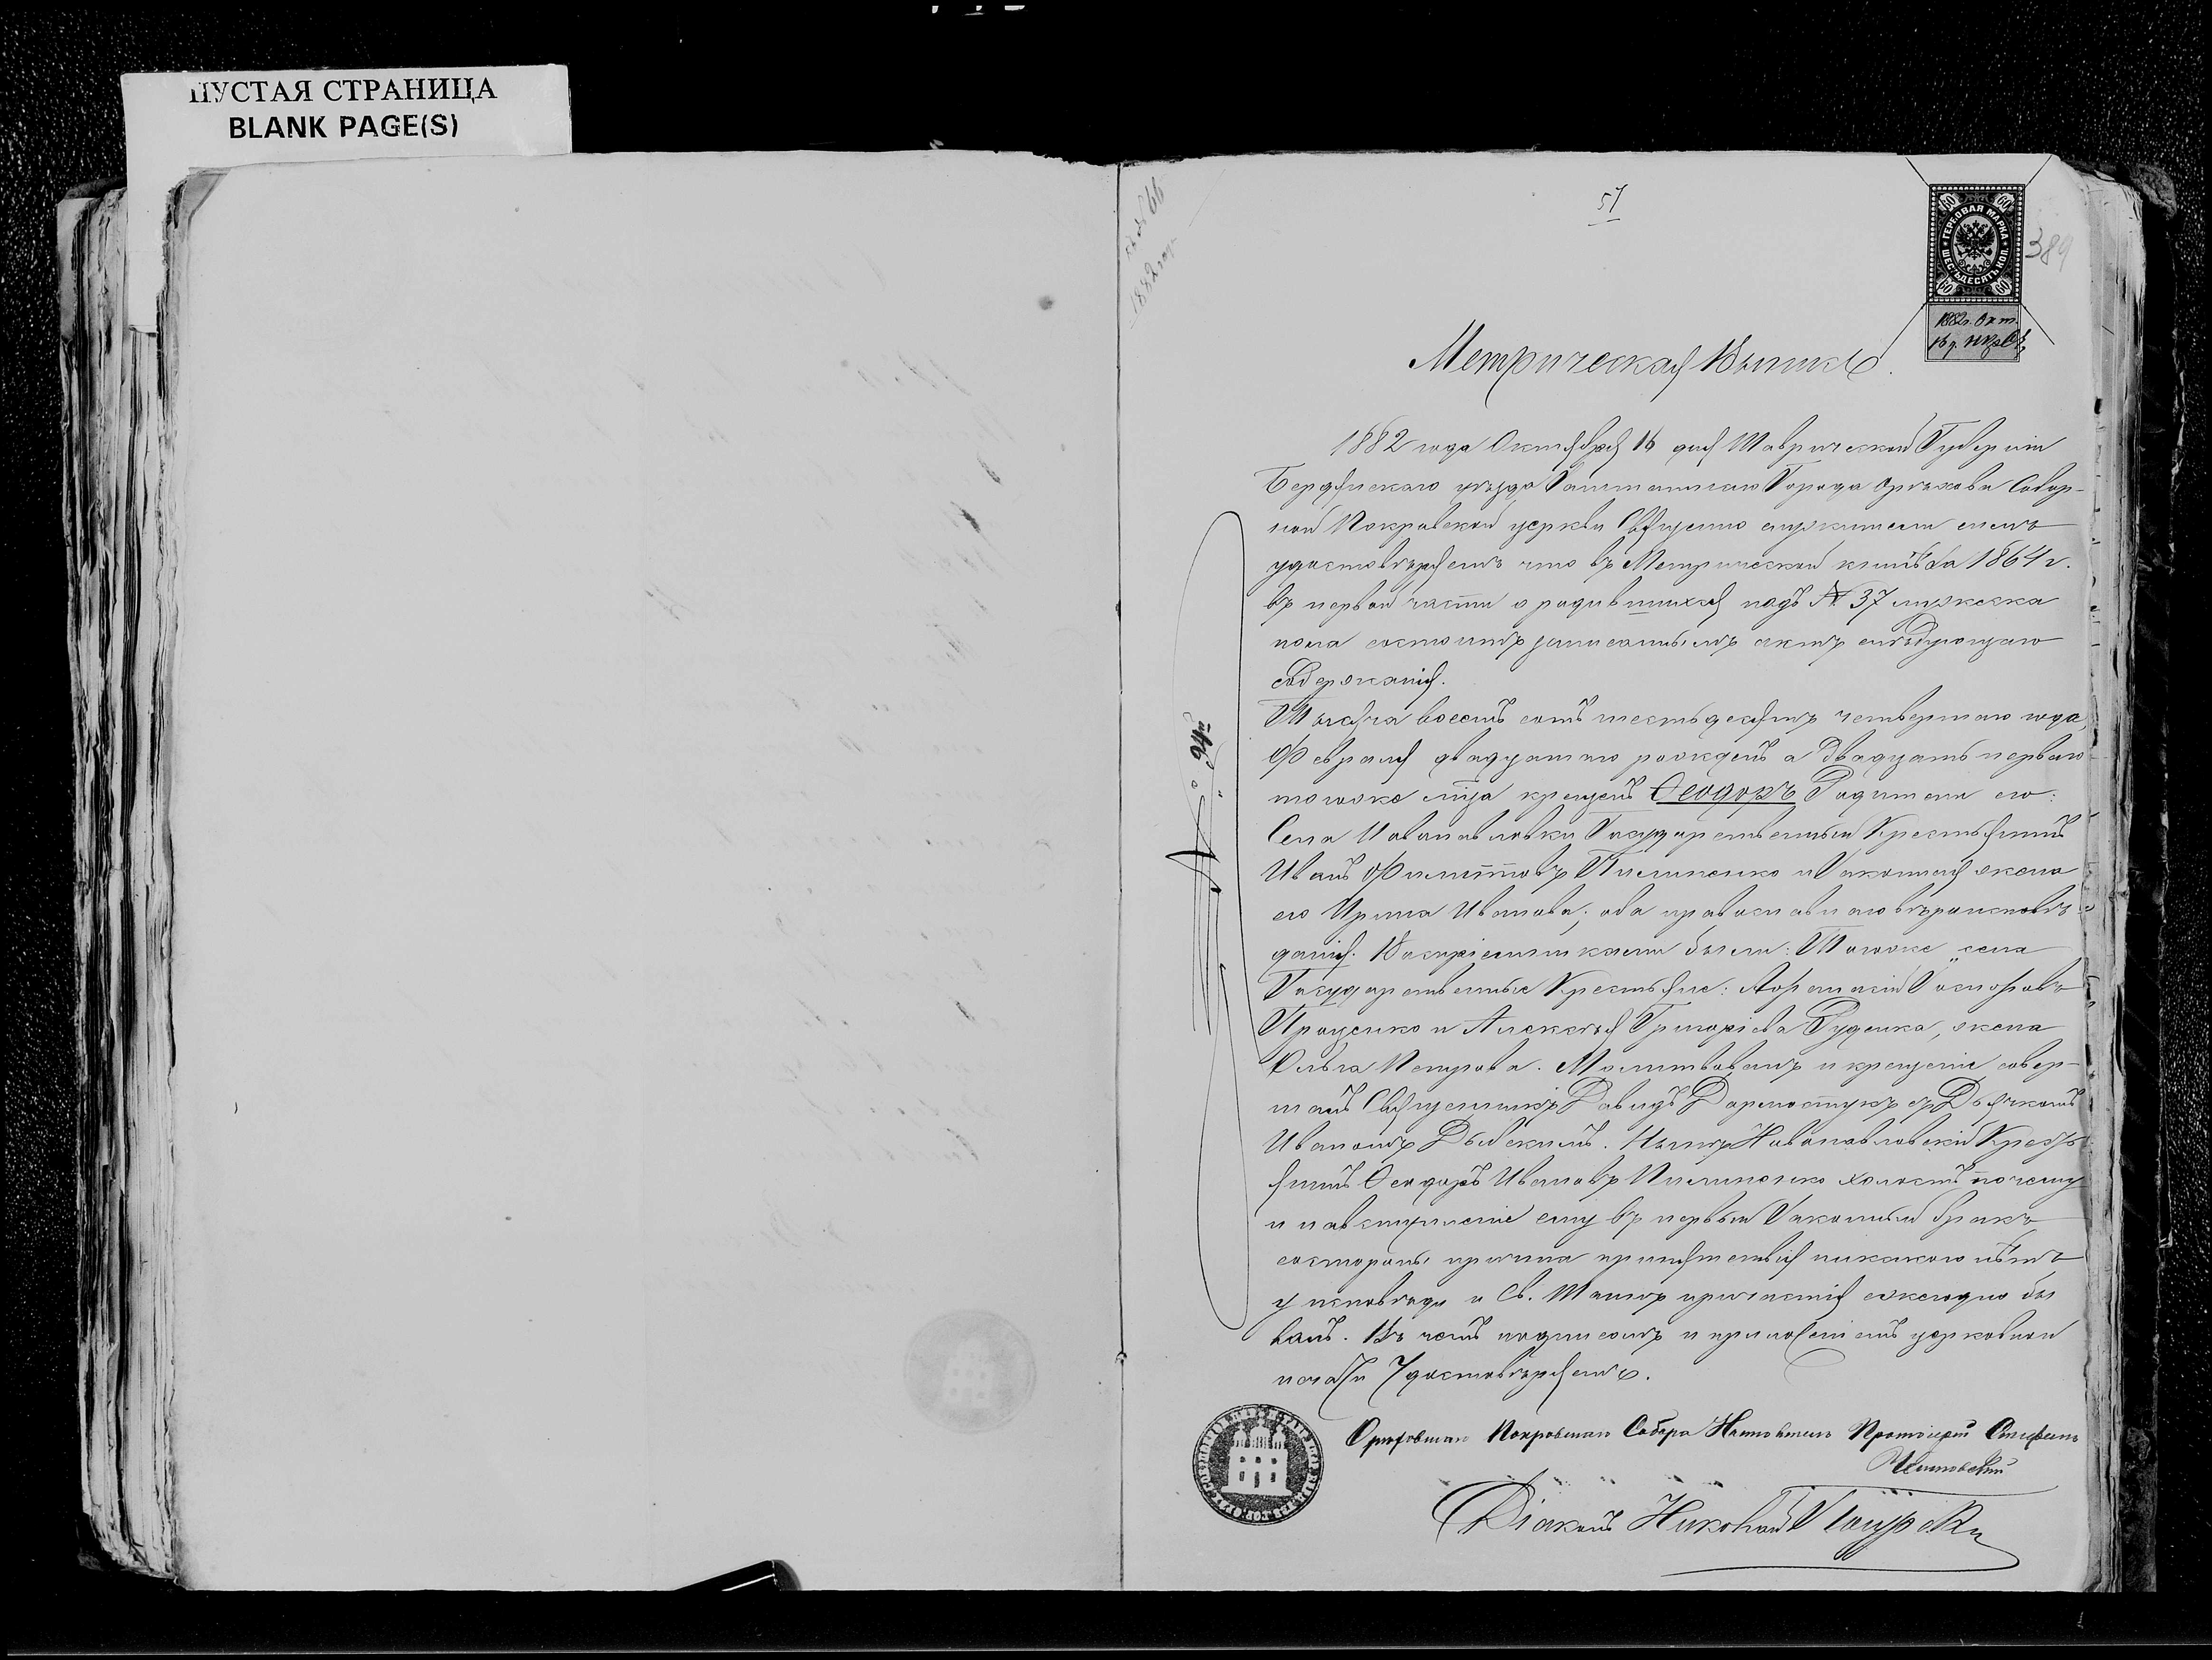 ПУСТАЯ СТРАНИЦА
BLANK PAGE(S)
57
389
ГЕРБОВАЯ МАРКА
ШЕСТЬДЕСЯТЪ КОП.
60 60 60 60
1882 г. Окт.
16 д.
1882 год
Метрическая Выпись.
1882 года Октября 16 дня Таврической Губерніи
Бердянскаго уѣзда Заштатнаго Города Орѣхова Собор-
ной Покровской церкви Священно служители симъ
удостовѣряемъ что въ Метрической книгѣ за 1864 г.
въ первой части о родившихся подъ № 37 мужеска
пола состоитъ записаннымъ актъ слѣдующаго
содержанія.
Тысяча восемь сотъ шестьдесятъ четвертаго года,
Февраля двадцатаго рожденъ а двадцать перваго
тогоже м͠ца крещенъ Ѳеодоръ Родители его:
Села Новопавловки Государственный Крестьянинъ
Иванъ Филипповъ Пилипенко и Законная жена
его Ирина Иванова; оба православнаго вѣроисповѣ-
данія. Воспріемниками были: Тогоже села
Государственные Крестьяне: Афанасій
Проценко и Алексѣя Григоріева Руденка, жена
Ольга Петрова. Молитвовалъ и крещеніе совер-
шалъ Священникъ Давидъ съ Дьячкомъ
Иваномъ Дубскимъ. Нынѣ Новопавловскій Кресть-
янинъ Ѳеодоръ Ивановъ Пилипенко холостъ почему
и на вступленіе ему въ первый Законный бракъ
со стороны причта препятствія никакого нѣтъ
у исповѣди и Св. Таинъ причастія ежегодно бы
валъ. Въ чемъ подписомъ и приложеніемъ церковной
печати удостовѣряемъ.
Орѣховскаго Покровскаго Собора Настоятель Протоіерей Стефанъ
Діаконъ Николай